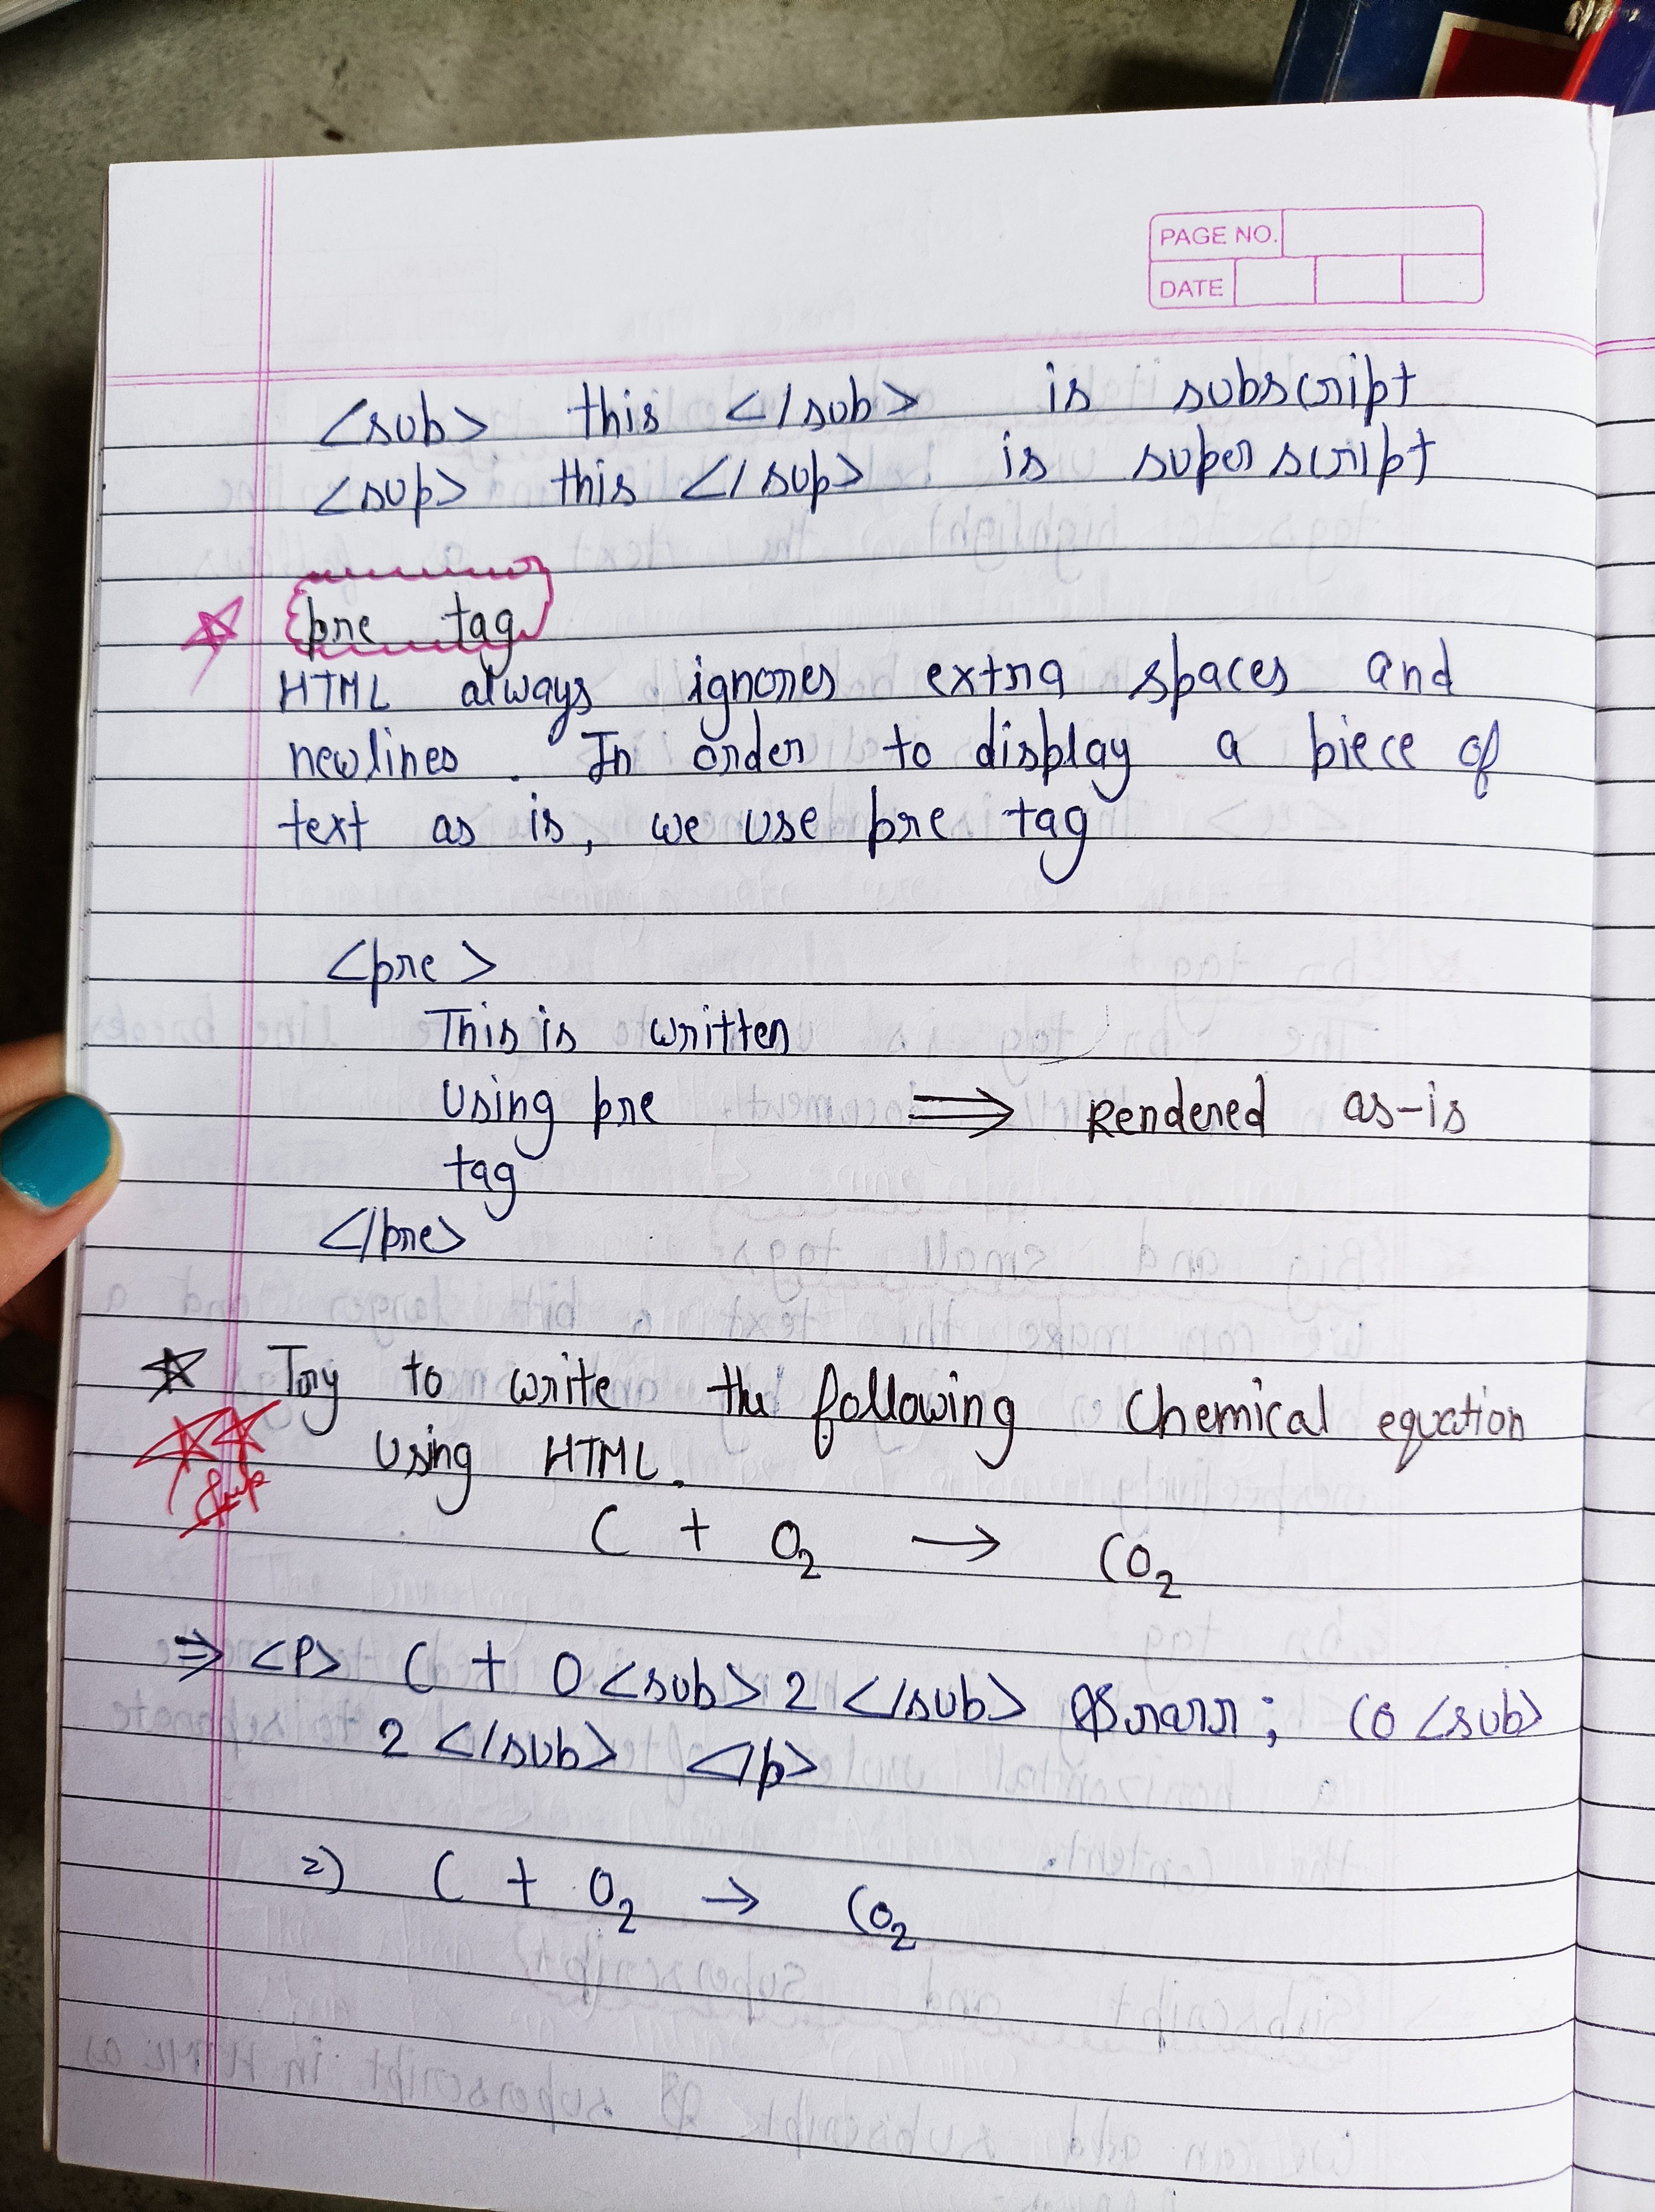 PAGE NO.
DATE
<sub> this </sub> is subscript
<sup> this </sup> is superscript
pre tag
HTML always ignores extra spaces and
newlines. In order to display a piece of
text as is, we use pre tag
<pre>
This is written
Using pre ⟹ Rendered as-is
tag
</pre>
☆ Try to write the following Chemical equation
Using HTML.
C + O₂ → CO₂
⇒ <P> C + O<sub> 2 </sub> &rarr; CO <sub>
2 </sub> </p>
⇒ C + O₂ → CO₂